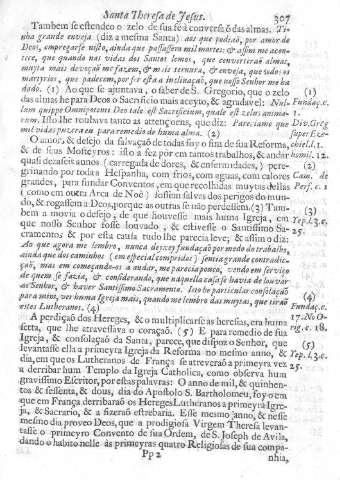 Santa Theresa de Jesus. 307
Tambem se estendeo o zelo de sua fè à conversaõ das almas. Ti-
nha grande enveja (diz a mesma Santa) aos que podiaõ, por amor de
Deos, empregarse nisto, ainda que passassem mil mortes: & assim me acon-
tece, que quando nas vidas dos Santos lemos, que converteraõ almas,
muyta mais devoçaõ me fazem, & mais ternura, & enveja, que todos os
martyrios, que padecem, por ser esta a inclinaçaõ, que nosso Senhor me ha
dado. (1) Ao que se ajuntava, o saber de S. Gregorio, que o zelo
das almas he para Deos o Sacrificio mais aceyto, & agradavel: Nul-
lum quippe Omnipotenti Deo tale est Sacrificium, quale est zelus anima-
rum. Isto lhe roubava tanto as attençoens, que diz: Pareciame que
mil vidas puzera eu para remedio de huma alma. (2)
O amor, & desejo da salvaçaõ de todas foy o fim de sua Reforma,
& de seus Mosteyros: isto a fez pôr em tantos trabalhos, & andar
quasi dezaseis annos (carregada de dores, & enfermidades,) pere-
grinando por toda a Hespanha, com frios, com aguas, com calores
grandes, para fundar Conventos, em que recolhidas muytas dellas
(como em outra Arca de Noè) fossem salvas dos perigos do mun-
do, & rogassem a Deos, porque as outras se não perdessem. (3) Tam-
bem a movia o desejo, de que houvesse mais huma Igreja, em
que nosso Senhor fosse louvado, & estivesse o Santissimo Sa-
cramento: & por esta causa tudo lhe parecia leve; & assim diz:
Ao que agora me lembro, nunca deyxey fundaçaõ por medo do trabalho,
ainda que dos caminhos (em especial compridos) sentia grande contradic-
çaõ, mas em começando-os a andar, me parecia pouco, vendo em serviço
de quem se fazia, & considerando, que naquella casa se havia de louvar
ao Senhor, & haver Santissimo Sacramento. Isto he particular consolaçaõ
para mim, ver huma Igreja mais, quando me lembro das muytas, que tiraõ
estes Lutheranos. (4)
A perdiçaõ dos Hereges, & o multiplicarse as heresias, era huma
setta, que lhe atravessava o coraçaõ. (5) E para remedio de sua
Igreja, & consolaçaõ da Santa, parece, que dispoz o Senhor, que
levantasse ella a primeyra Igreja da Reforma no mesmo anno, &
dia, em que os Lutheranos de França se atreveraõ a primeyra vez
a derribar hum Templo da Igreja Catholica, como observa hum
gravissimo Escritor, por estas palavras: O anno de mil, & quinhen-
tos & sessenta, & dous, dia do Apostolo S. Bartholomeu, foy o em
que em França derribaraõ os Hereges Lutheranos a primeyra Igre-
ja, & Sacrario, & a fizeraõ estrebaria. Esse mesmo janno, & nesse
mesmo dia proveo Deos, que a prodigiosa Virgem Theresa levan-
tasse o primeyro Convento de sua Ordem, de S. Joseph de Avila,
dando o habito nelle às primeyras quatro Religiosas de sua compa-
Pp 2 nhia,
(1)
Fundaç.c.
1.
Div. Greg
super Eze-
chiel.l. 1.
homil. 12.
(2)
Cam. de
Perf. c. 1
(3)
Yep.l.3.c.
25.
(4)
Fundaç.c.
(5)
Yep.l.3.c.
25.